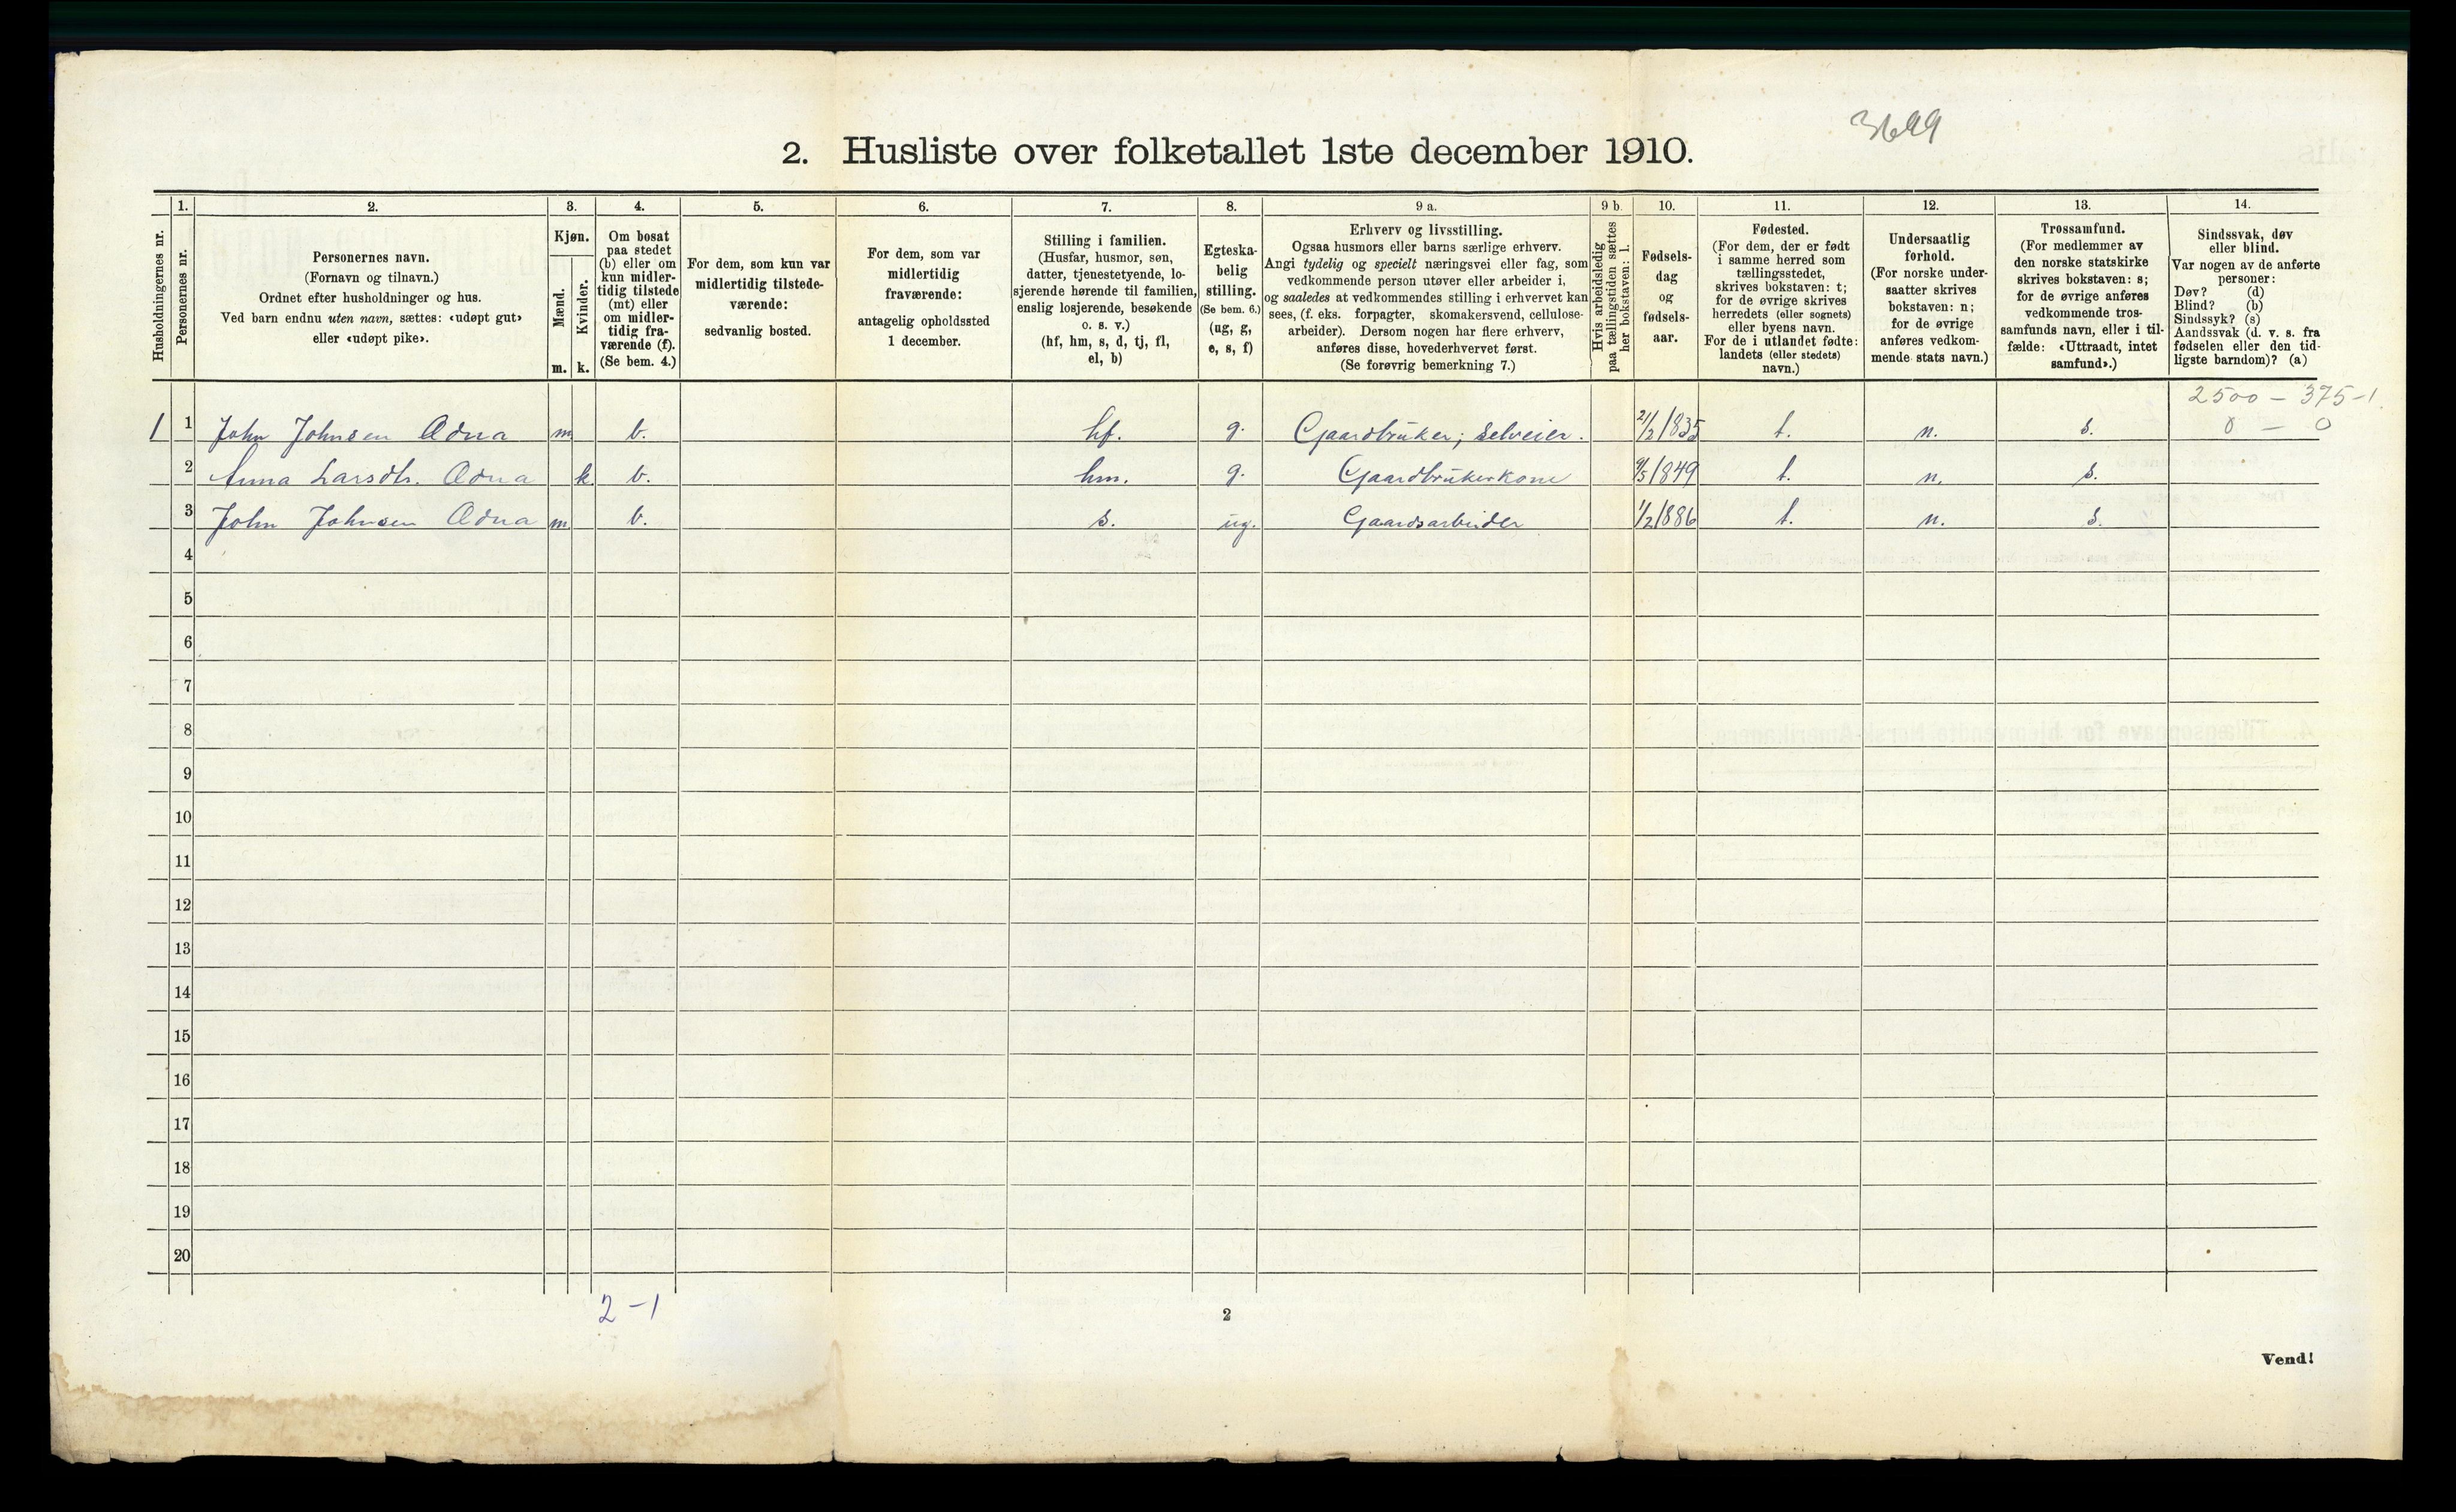 3699
2. Husliste over folketallet 1ste december 1910.
Husholdningernes nr.
1.
Personernes nr.
2.
Personernes navn.
(Fornavn og tilnavn.)
Ordnet efter husholdninger og hus.
Ved barn endnu uten navn, sættes: «udøpt gut»
eller «udøpt pike».
3.
Kjøn.
Mænd.
Kvinder.
m. k.
4.
Om bosat
paa stedet
(b) eller om
kun midler-
tidig tilstede
(mt) eller
om midler-
tidig fra-
værende (f).
(Se bem. 4.)
5.
For dem, som kun var
midlertidig tilstede-
værende:
sedvanlig bosted.
6.
For dem, som var
midlertidig
fraværende:
antagelig opholdssted
1 december.
7.
Stilling i familien.
(Husfar, husmor, søn,
datter, tjenestetyende, lo-
sjerende hørende til familien,
enslig losjerende, besøkende
o. s. v.)
(hf, hm, s, d, tj, fl,
el, b)
8.
Egteska-
belig
stilling.
(Se bem. 6.)
(ug, g,
e, s, f)
9 a.
Erhverv og livsstilling.
Ogsaa husmors eller barns særlige erhverv.
Angi tydelig og specielt næringsvei eller fag, som
vedkommende person utøver eller arbeider i,
og saaledes at vedkommendes stilling i erhvervet kan
sees, (f. eks. forpagter, skomakersvend, cellulose-
arbeider). Dersom nogen har flere erhverv,
anføres disse, hovederhvervet først.
(Se forøvrig bemerkning 7.)
9 b.
Hvis arbeidsledig
paa tællingstiden sættes
her bokstaven: l.
10.
Fødsels-
dag
og
fødsels-
aar.
11.
Fødested.
(For dem, der er født
i samme herred som
tællingsstedet,
skrives bokstaven: t;
for de øvrige skrives
herredets (eller sognets)
eller byens navn.
For de i utlandet fødte:
landets (eller stedets)
navn.)
12.
Undersaatlig
forhold.
(For norske under-
saatter skrives
bokstaven: n;
for de øvrige
anføres vedkom-
mende stats navn.)
13.
Trossamfund.
(For medlemmer av
den norske statskirke
skrives bokstaven: s;
for de øvrige anføres
vedkommende tros-
samfunds navn, eller i til-
fælde: «Uttraadt, intet
samfund».)
14.
Sindssvak, døv
eller blind.
Var nogen av de anførte
personer:
Døv? (d)
Blind? (b)
Sindssyk? (s)
Aandssvak (d. v. s. fra
fødselen eller den tid-
ligste barndom)? (a)
2500 – 375–1.
1 1 John Johnsen Ødna m b. hf. g. Gaardbruker; selveier. 21/2 1835 t. n. s. 8 – 0
2 Anna Larsdtr. Ødna k b. hm. g. Gaardbrukerkone 9/5 1849 t. n. s.
3 John Johnsen Ødna m b. s. ug. Gaardsarbeider 1/2 1886 t. n. s.
4
5
6
7
8
9
10
11
12
13
14
15
16
17
18
19
20
2 – 1
2
Vend!